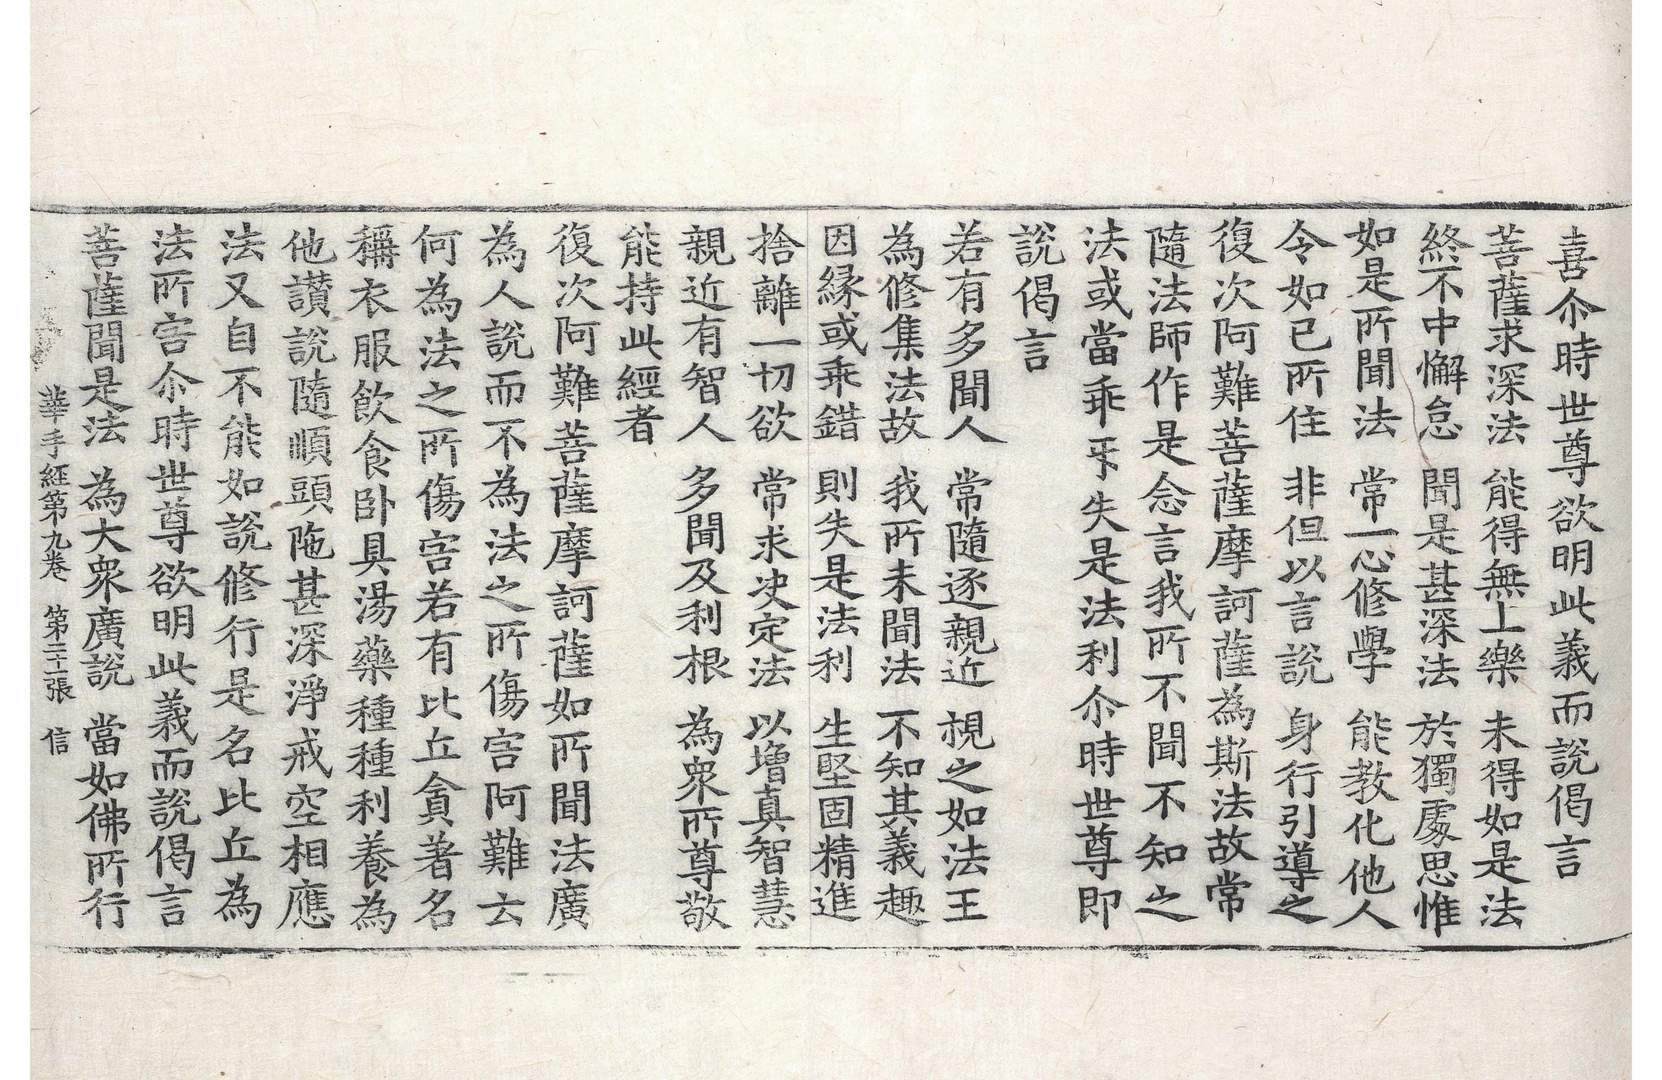 喜尒時世尊欲明此義而說偈言
菩薩求深法 能得無上樂 未得如是法
終不中懈怠 聞是甚深法 於獨處思惟
如是所聞法 常一心修學 能教化他人
令如已所住 非但以言說 身行引導之
復次阿難菩薩摩訶薩為斯法故常
隨法師作是念言我所不聞不知之
法或當乖𠃨失是法利尒時世尊即
說偈言
若有多聞人 常隨逐親近 視之如法王
為修集法故 我所未聞法 不知其義趣
因緣或乖錯 則失是法利 生堅固精進
捨離一切欲 常求决定法 以增真智慧
親近有智人 多聞及利根 為衆所尊敬
能持此經者
復次阿難菩薩摩訶薩如所聞法廣
為人說而不為法之所傷害阿難云
何為法之所傷害若有比丘貪著名
稱衣服飲食卧具湯藥種種利養為
他讃說隨順頭陁甚深淨戒空相應
法又自不能如說修行是名比丘為
法所害尒時世尊欲明此義而說偈言
菩薩聞是法 為大衆廣說 當如佛所行
華手經第九卷 第二十張 信